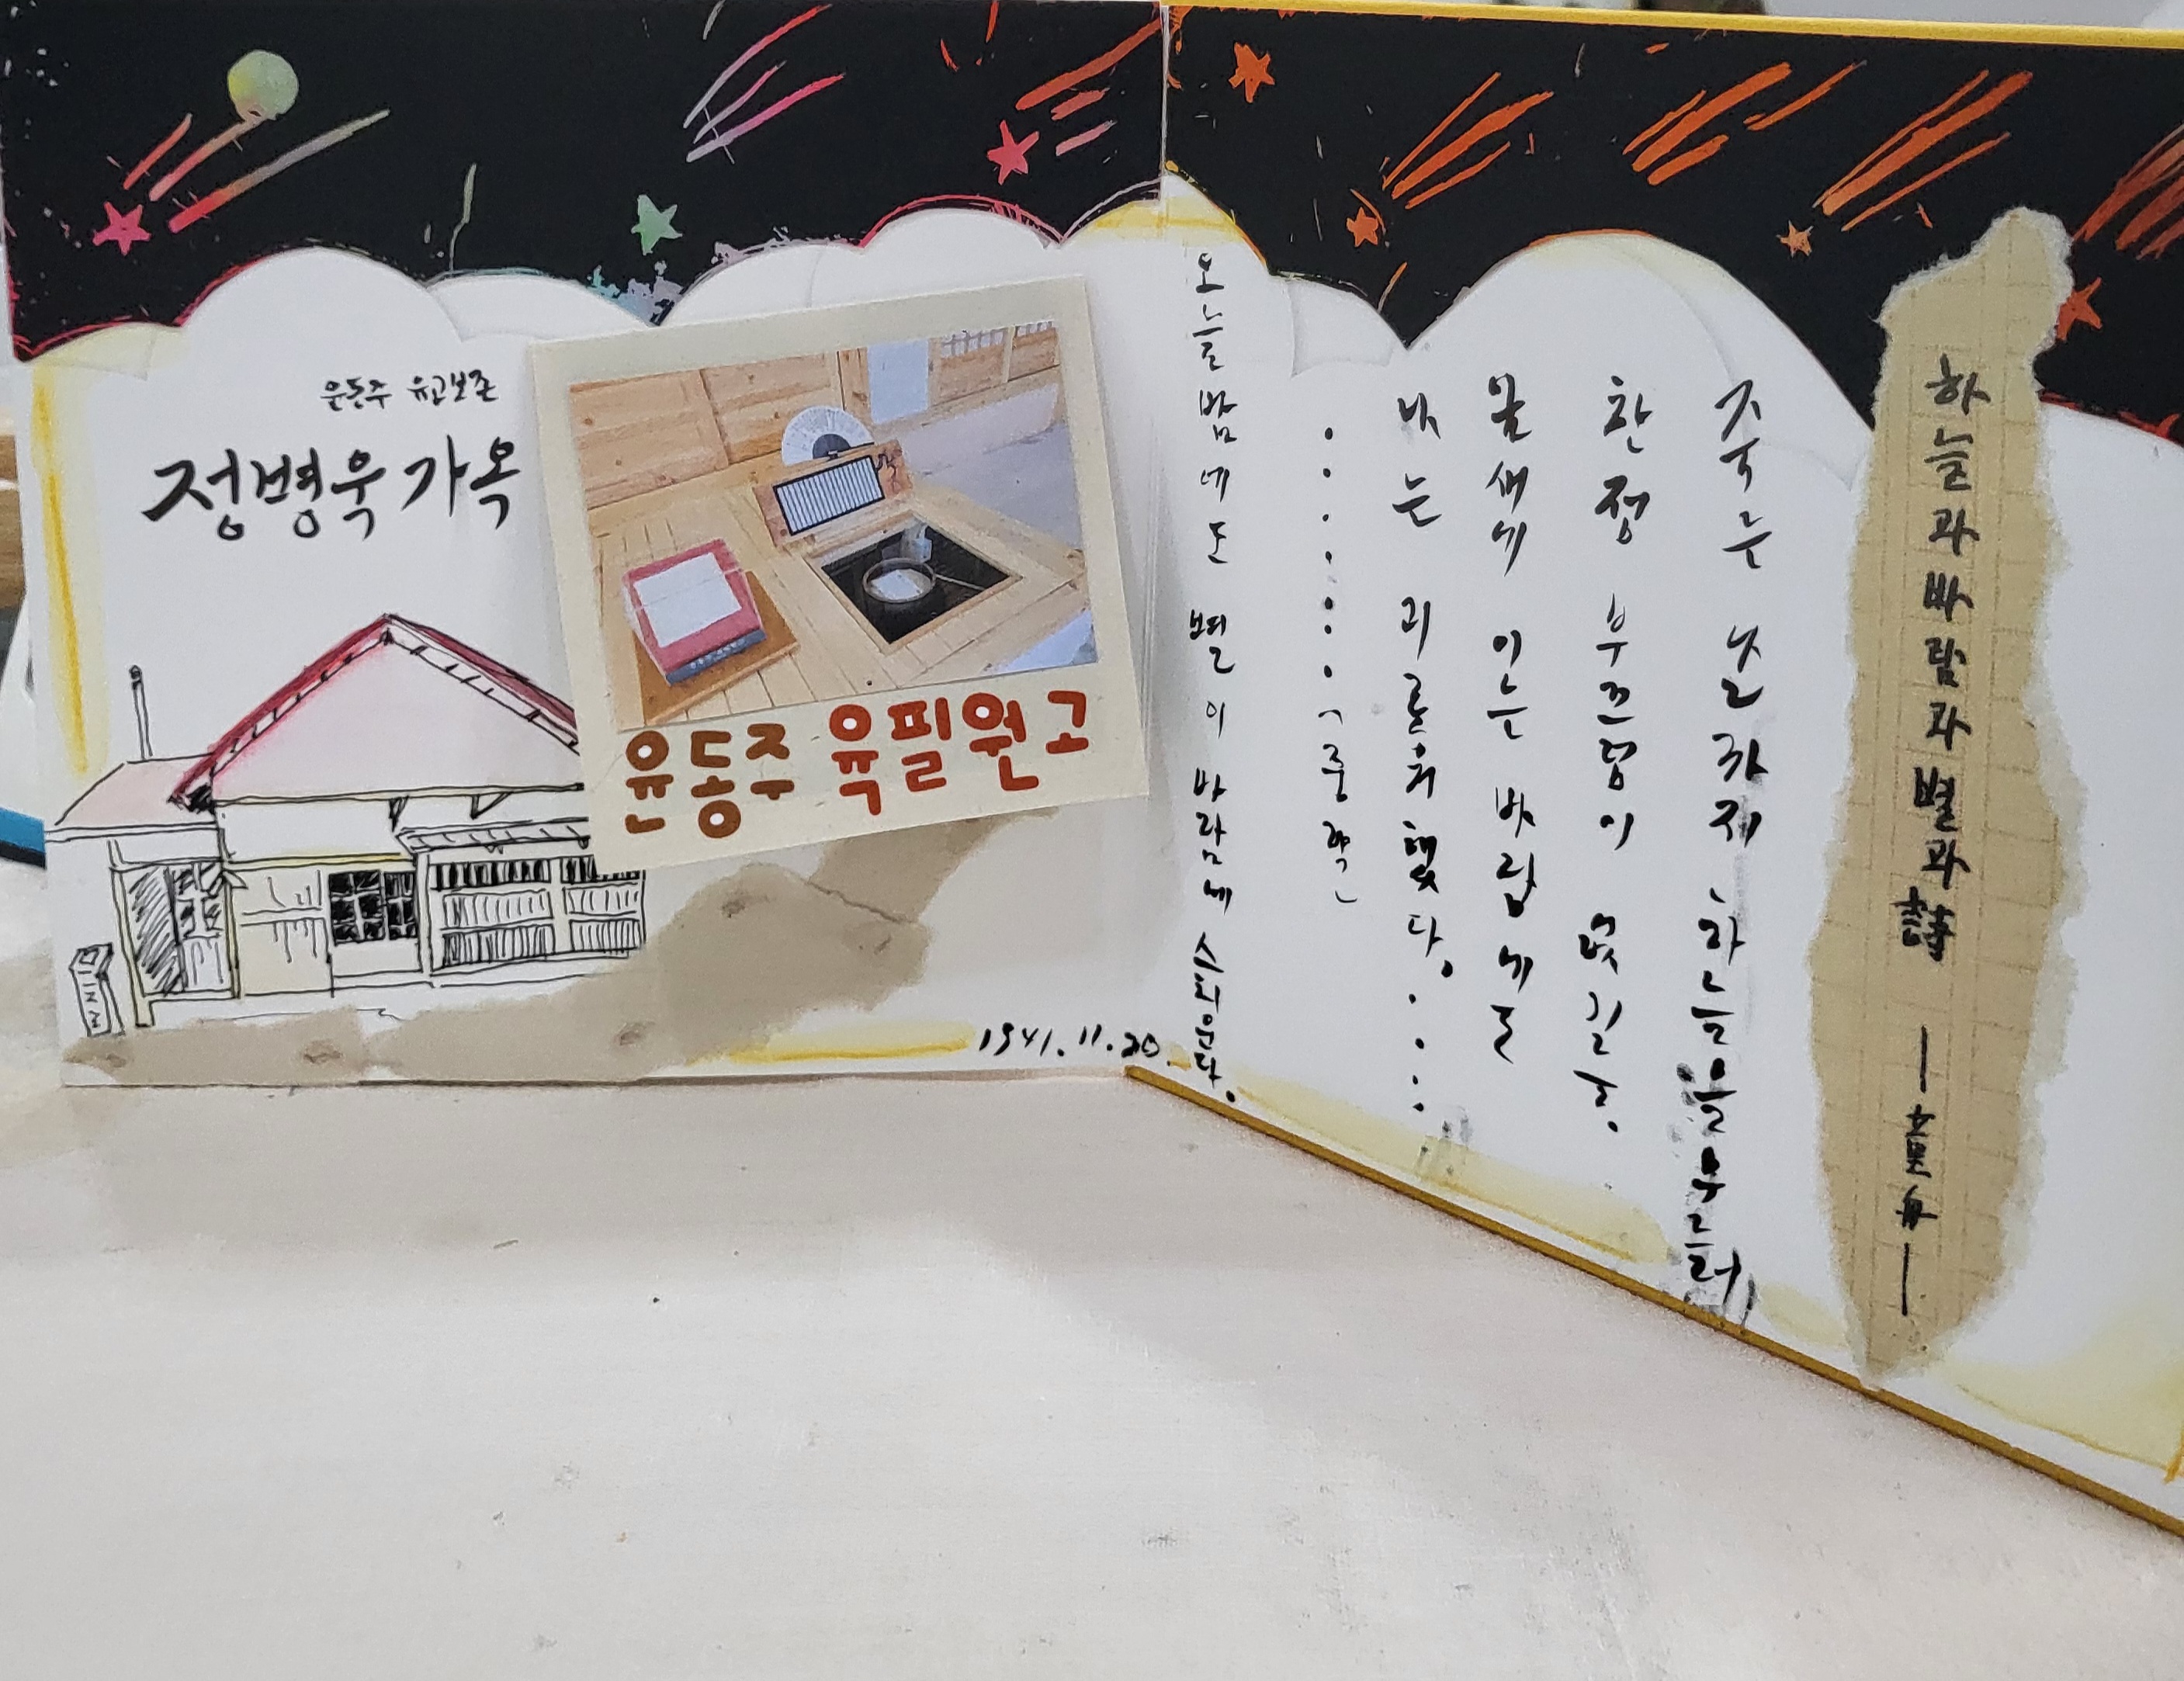 윤동주 유고보존
정병욱 가옥
윤동주 육필원고
하늘과 바람과 별과 詩 ―童舟―
죽는 날까지 하늘을 우르러
한점 부끄럼이 없기를.
잎새에 이는 바람에도
나는 괴로워했다. . . .
. . . . . . . (중략)
오늘밤에도 별이 바람에 스치운다.
1941. 11. 20.